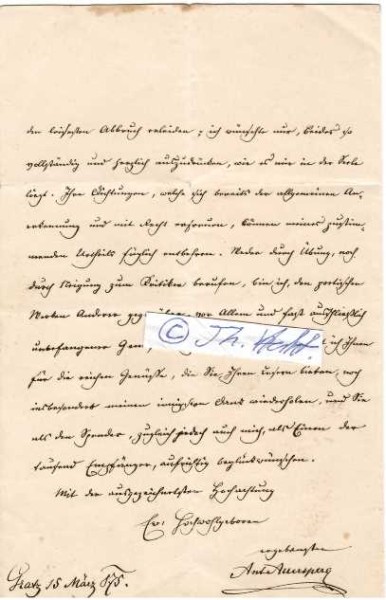 den leisesten Abbruch erleiden; ich wünschte nur, beides so
vollständig und herzlich auszudrücken, wie es mir in der Seele
liegt. Ihre Dichtungen, welche sich bereits der allgemeinen An-
erkennung und mit Recht erfreuen, können meines zustim-
menden Urtheils füglich entbehren. Weder durch Übung, noch
durch Neigung zum Kritiker berufen, bin ich, den poetischen
Werken Anderer gegenüber, vor Allem und fast ausschließlich
unbefangener ich Ihnen
© Th.
für die reichen Genüsse, die Sie Ihren Lesern bieten, noch
insbesondere meinen innigsten Dank wiederholen, und Sie
als den Spender, zugleich jedoch auch mich, als Einen der
tausend Empfänger, aufrichtig beglückwünschen.
Mit der ausgezeichnetsten Hochachtung
Ew. Hochwohlgeboren
ergebenster
Ant. Auersperg
Gratz 15 März 875.